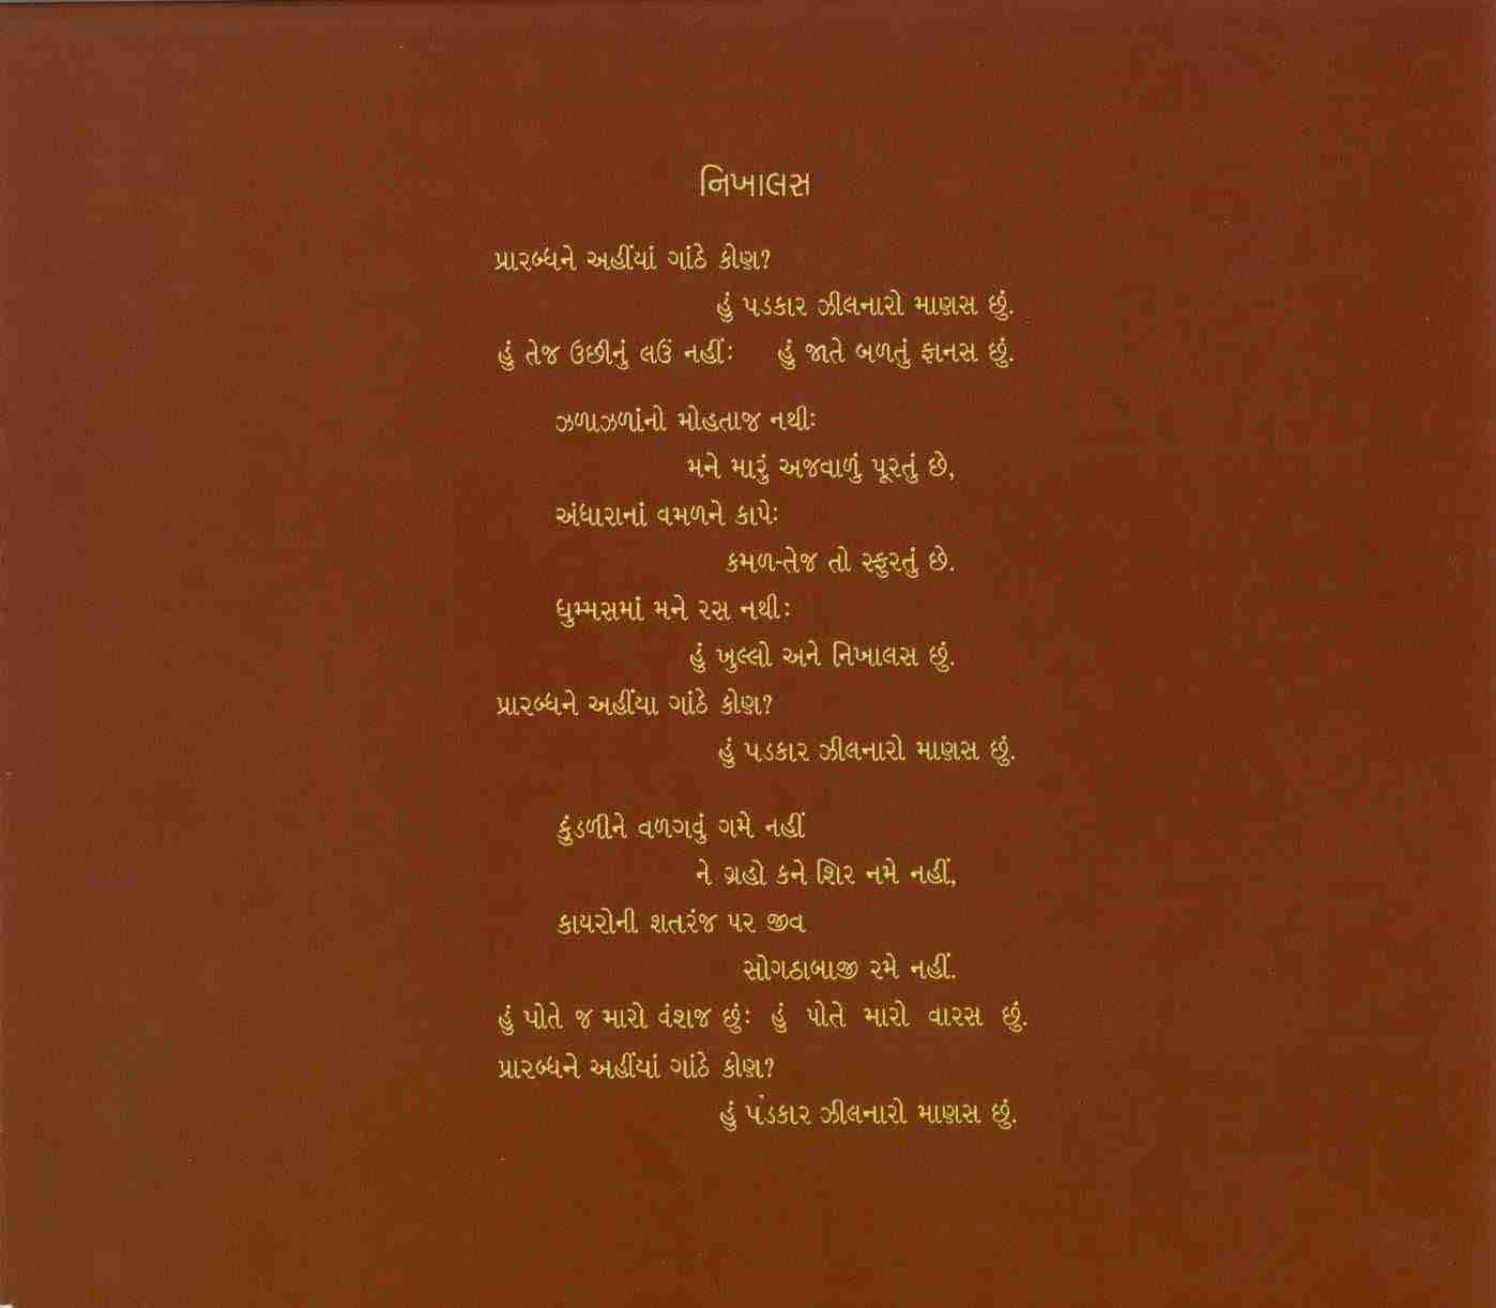 નિખાલસ
પ્રારબ્ધને અહીંયાં ગાંઠે કોણ?
હું પડકાર ઝીલનારો માણસ છું.
હું તેજ ઉછીનું લઉં નહીંઃ હું જાતે બળતું ફાનસ છું.
ઝળાઝળાંનો મોહતાજ નથીઃ
મને મારું અજવાળું પૂરતું છે,
અંધારાનાં વમળને કાપેઃ
કમળ-તેજ તો સ્ફુરતું છે.
ધુમ્મસમાં મને રસ નથીઃ
હું ખુલ્લો અને નિખાલસ છું.
પ્રારબ્ધને અહીંયા ગાંઠે કોણ?
હું પડકાર ઝીલનારો માણસ છું.
કુંડળીને વળગવું ગમે નહીં
ને ગ્રહો કને શિર નમે નહીં,
કાયરોની શતરંજ પર જીવ
સોગઠાબાજી રમે નહીં.
હું પોતે જ મારો વંશજ છુંઃ હું પોતે મારો વારસ છું.
પ્રારબ્ધને અહીંયાં ગાંઠે કોણ?
હું પડકાર ઝીલનારો માણસ છું.